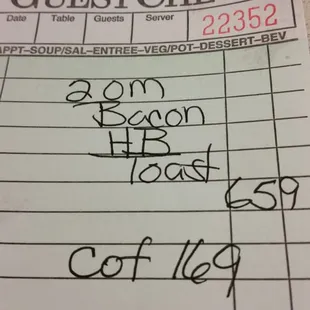 GUEST CHE
Date Table Guests Server
22352
APPT-SOUP/SAL-ENTREE-VEG/POT-DESSERT-BEV
2 om
Bacon
HB
Toast
659
Cof 169